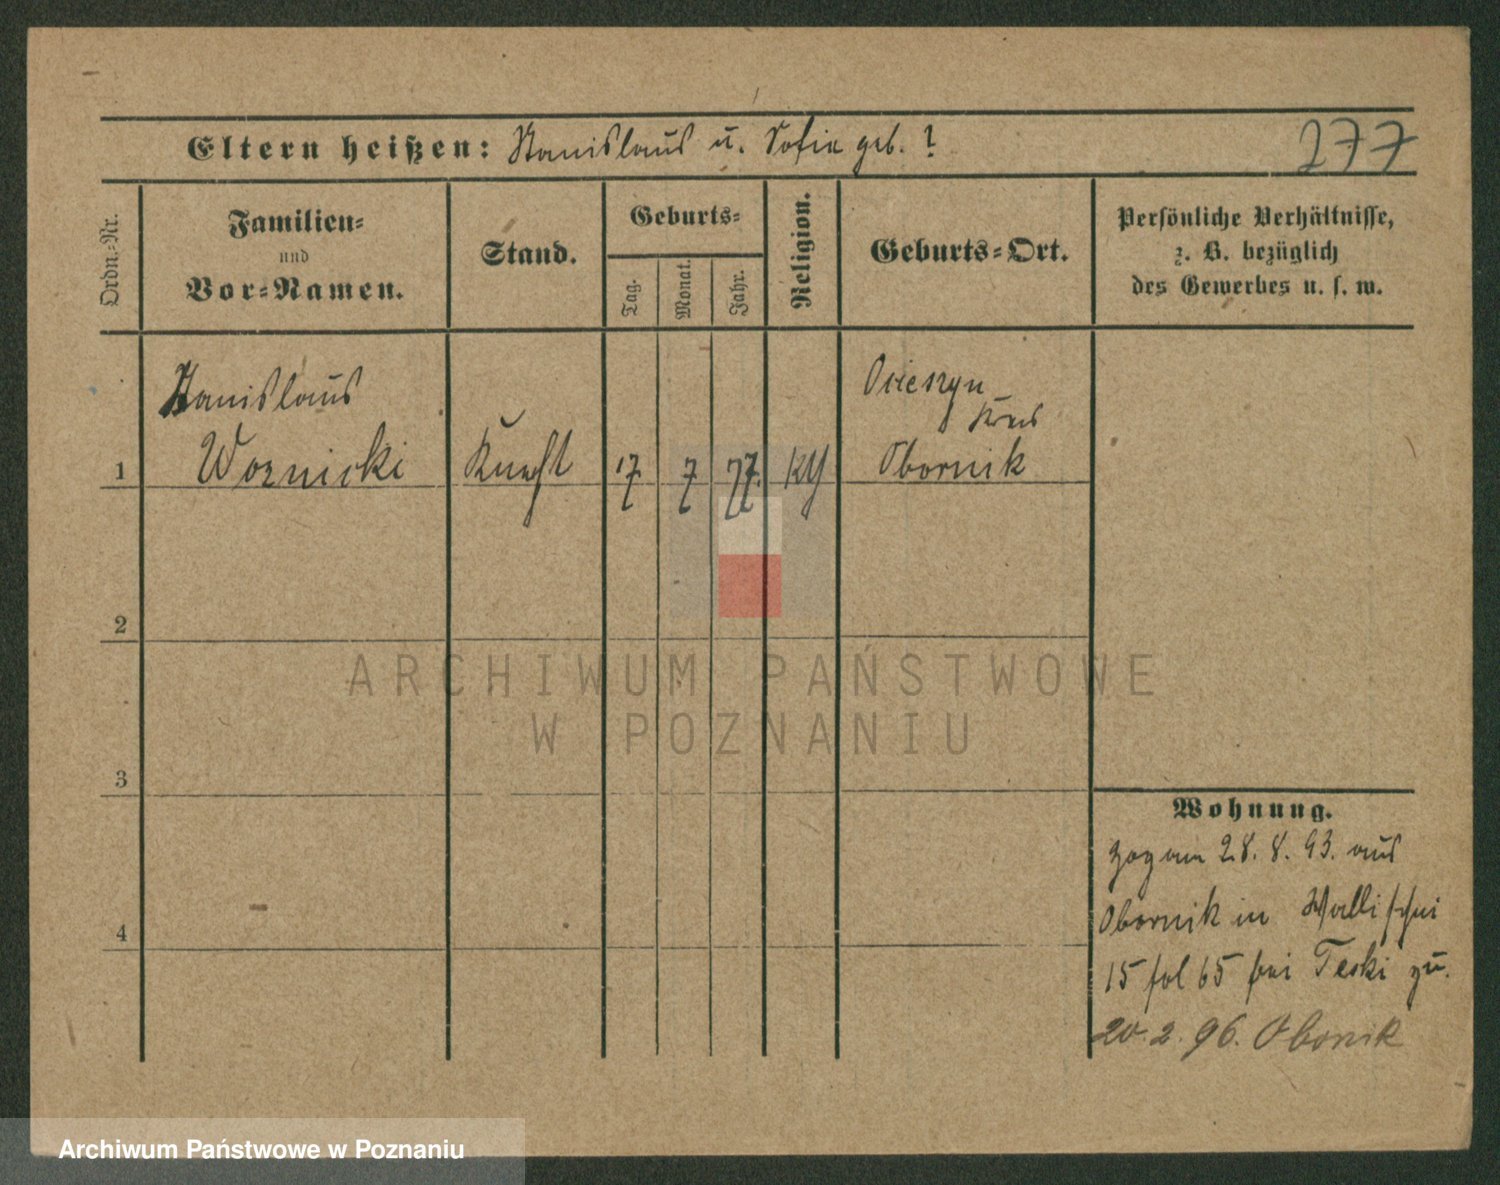 Eltern heißen: Stanislaus u. Sofia geb. ?
277
Ordn.-Nr.
Familien-
und
Vor-Namen.
Stand.
Geburts-
Tag.
Monat.
Jahr.
Religion.
Geburts-Ort.
Persönliche Verhältnisse,
z. B. bezüglich
des Gewerbes u. s. w.
Stanislaus
Woznicki
Knecht
17
7
77.
kth
Kreis
Obornik
1
2
3
4
ARCHIWUM PAŃSTWOWE
W POZNANIU
Wohnung.
zog am 28.8.93. aus
Obornik in Wallischei
15 fol 65 bei Teski zu.
20.2.96. Obornik
Archiwum Państwowe w Poznaniu